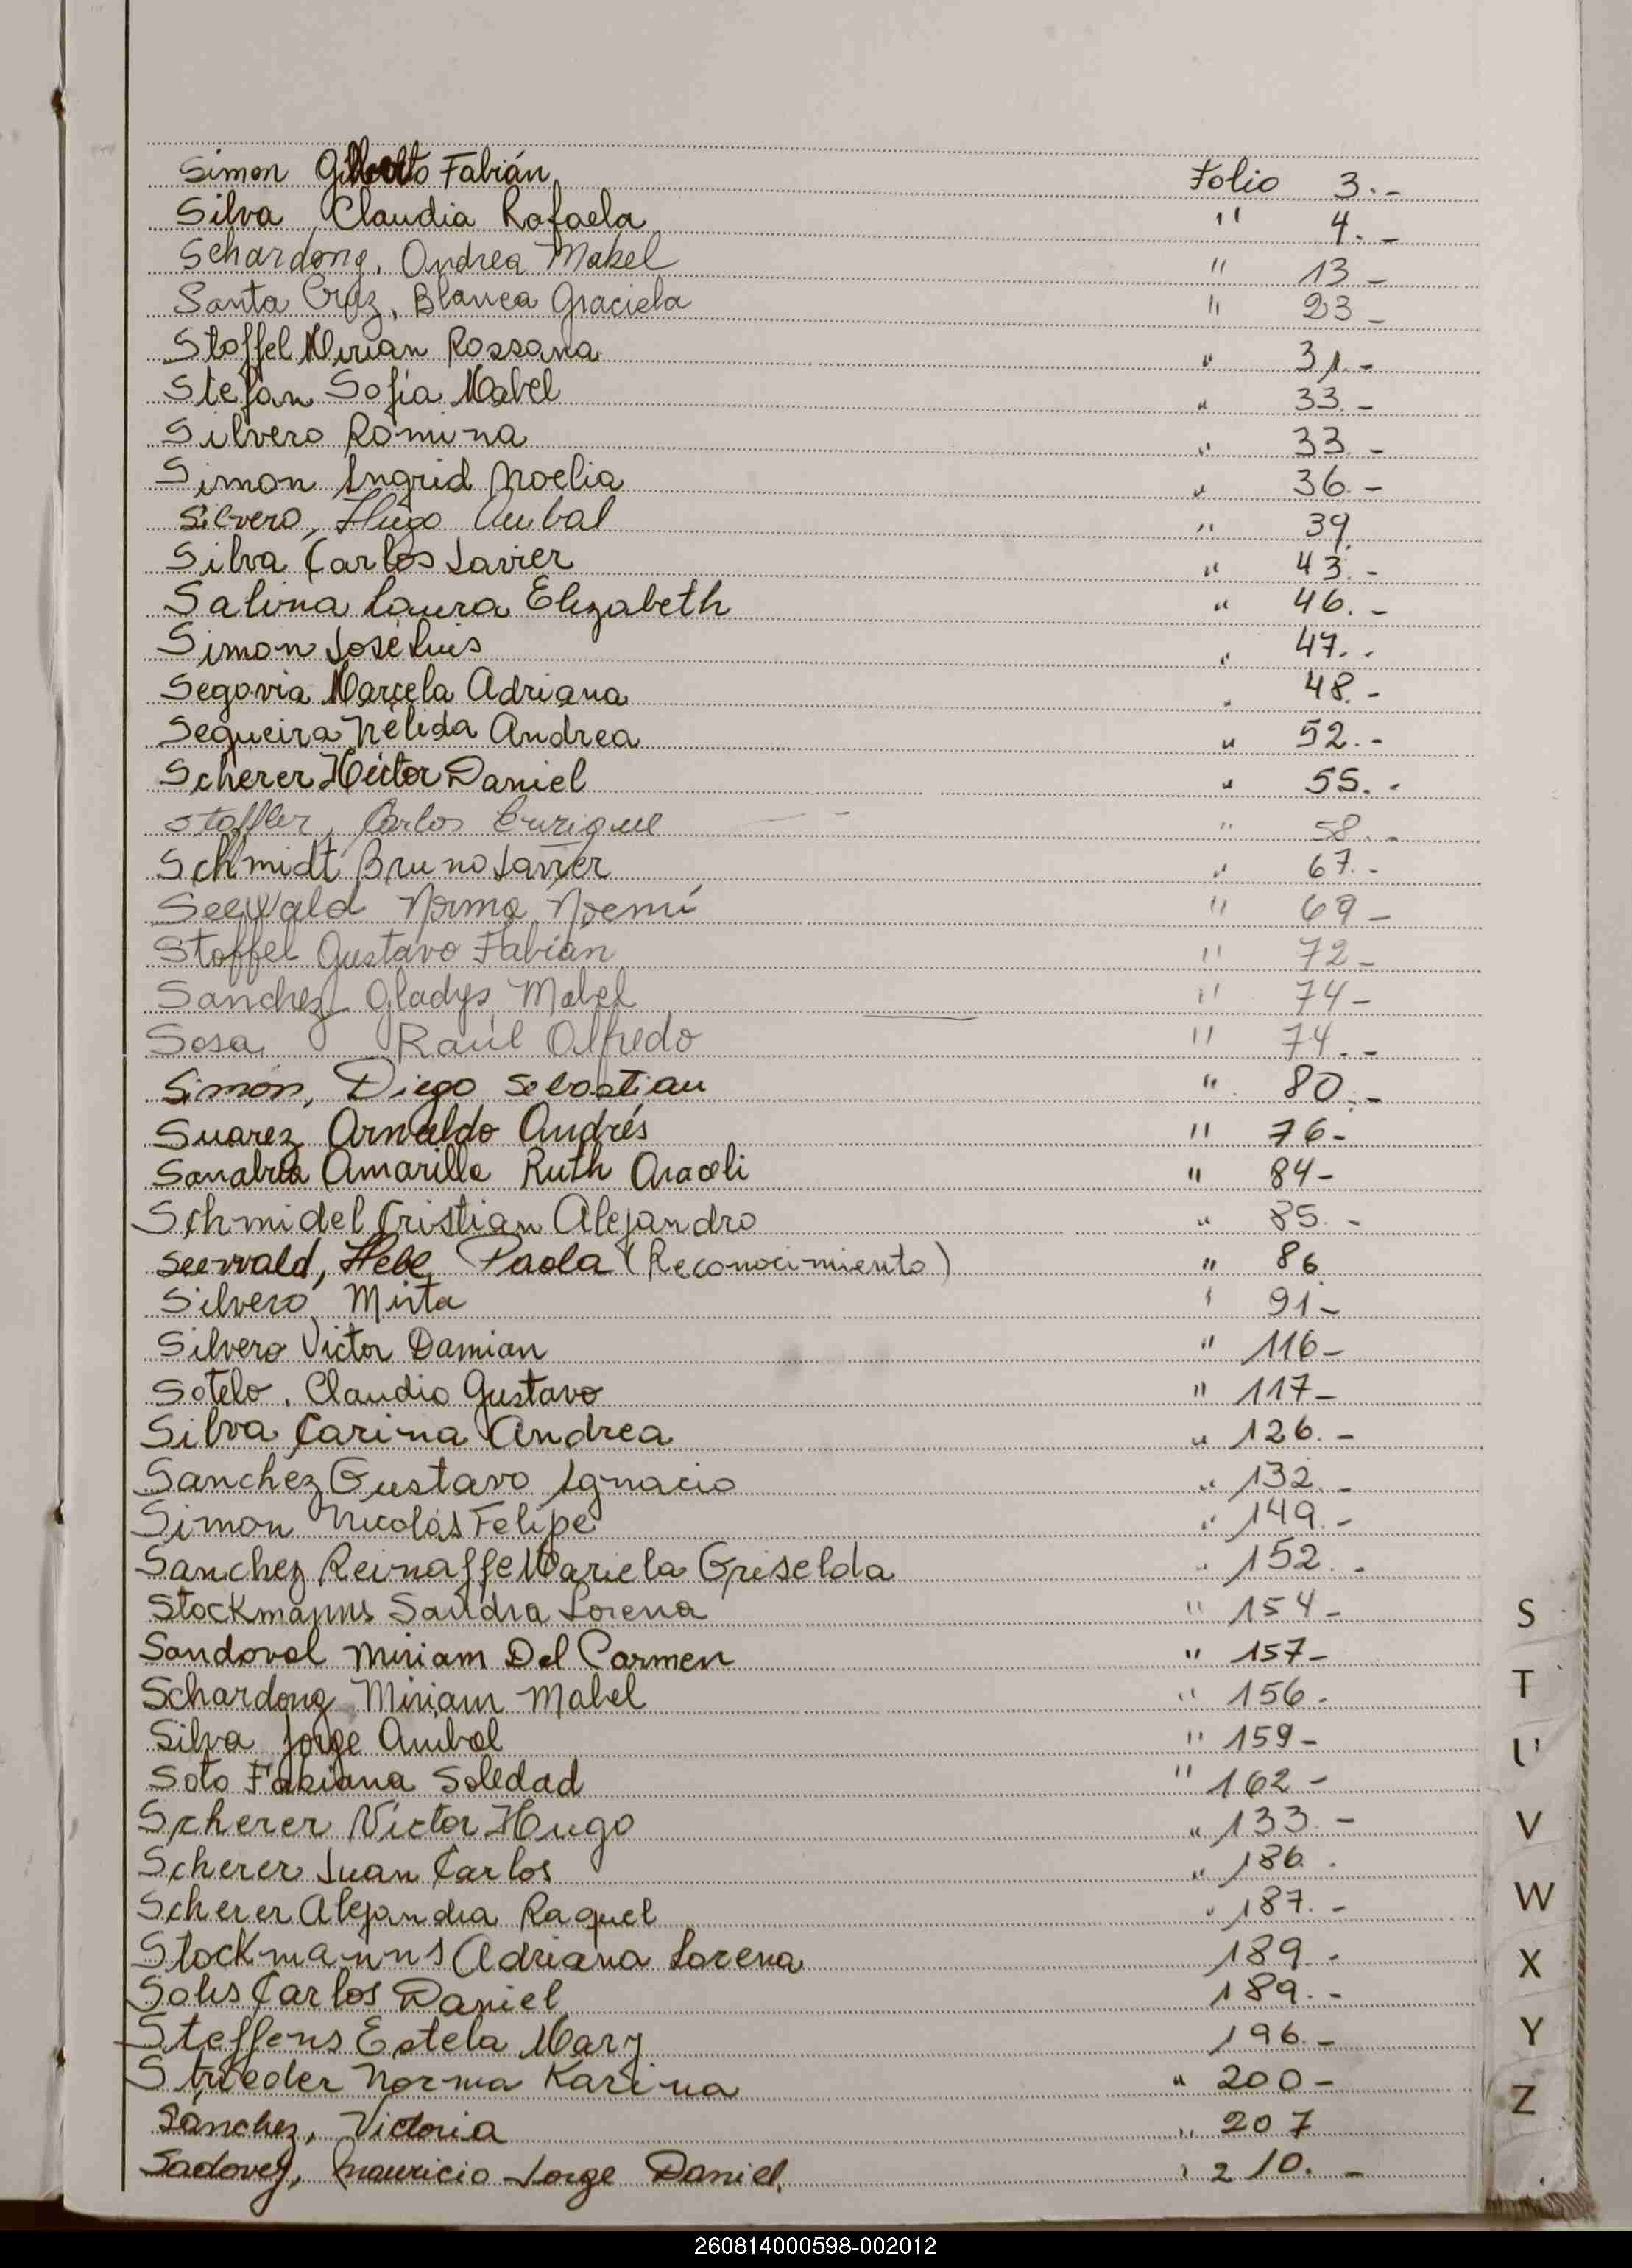 Simon Gilberto Fabián Folio 3.-
Silva Claudia Rafaela " 4.-
Schardong, Andrea Mabel " 13-
Santa Cruz, Blanca Graciela " 23-
Stoffel Mirian Rossana " 31.-
Stefan Sofia Mabel " 33.-
Silvero Romina " 33.-
Simon Ingrid Noelia " 36.-
Silvero, Hugo Anibal " 39.
Silva Carlos Javier " 43.-
Salina Laura Elizabeth " 46.-
Simon José Luis " 47.-
Segovia Marcela Adriana " 48.-
Sequeira Nélida Andrea " 52.-
Scherer Héctor Daniel " 55.-
Stoffler, Carlos Enrique " 58.-
Schmidt Bruno Javier " 67.-
Seewald Norma Noemí " 69-
Stoffel Gustavo Fabián " 72-
Sanchez Gladys Mabel " 74-
Sosa Raúl Alfredo " 74.-
Simón, Diego Sebastian " 80.-
Suarez Arnaldo Andrés " 76-
Sanabria Amarilla Ruth Araceli " 84-
Schmidel Cristian Alejandro " 85.-
Seewald, Hebe Paola (Reconocimiento) " 86
Silvero Mirta " 91-
Silvero Victor Damian " 116-
Sotelo, Claudio Gustavo " 117-
Silva Carina Andrea " 126.-
Sanchez Gustavo Ignacio " 132.-
Simon Nicolás Felipe " 149.-
Sanchez Reinaffe Mariela Griselda " 152.-
Stockmanns Sandra Lorena " 154-
Sandoval Miriam Del Carmen " 157-
Schardong Miriam Mabel " 156-
Silva Jorge Anibal " 159-
Soto Fabiana Soledad " 162-
Scherer Víctor Hugo " 133.-
Scherer Juan Carlos " 186.
Scherer Alejandra Raquel " 187.-
Stockmanns Adriana Lorena 189.-
Solis Carlos Daniel 189.-
Steffens Estela Mary 196.-
Strieder Norma Karina " 200-
Sánchez, Victoria " 207
Sadovey, Mauricio Jorge Daniel. " 210.-
S
T
U
V
W
X
Y
Z
260814000598-002012